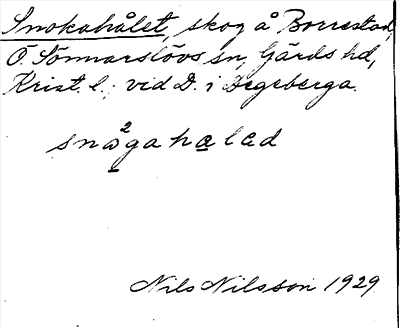 Snokahålet, skog å Borrestad,
Ö. Sönnarslövs sn, Gärds hd,
Krist. l.; vid D. i Degeberga.
snågahalad
Nils Nilsson 1929